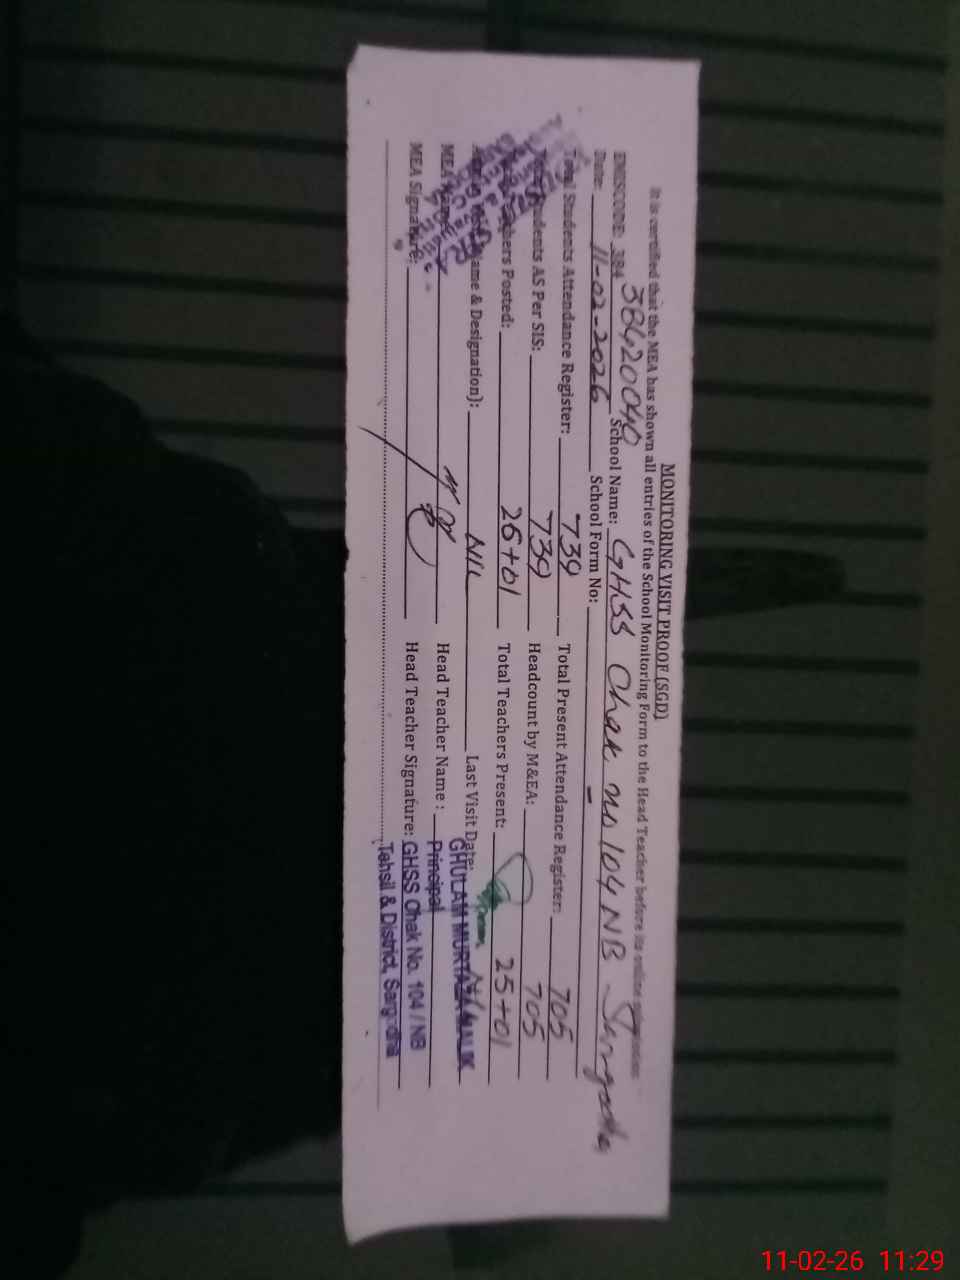 MONITORING VISIT PROOF (SGD)
It is certified that the MEA has shown all entries of the School Monitoring Form to the Head Teacher before its online
EMISCODE: 384 38420040 School Name: GHSS Chak no 104 NB Sargodha
Date: 11-02-2026 School Form No: -
Total Students Attendance Register: 739 Total Present Attendance Register: 705
Students AS Per SIS: 739 Headcount by M&EA: 705
Teachers Posted: 26+01 Total Teachers Present: 25+01
Name & Designation): Nil Last Visit Date:
MEA Name: Head Teacher Name : GHULAM MURTAZA MALIK
Principal
MEA Signature: Head Teacher Signature: GHSS Chak No. 104 / NB
Tehsil & District, Sargodha
11-02-26 11:29